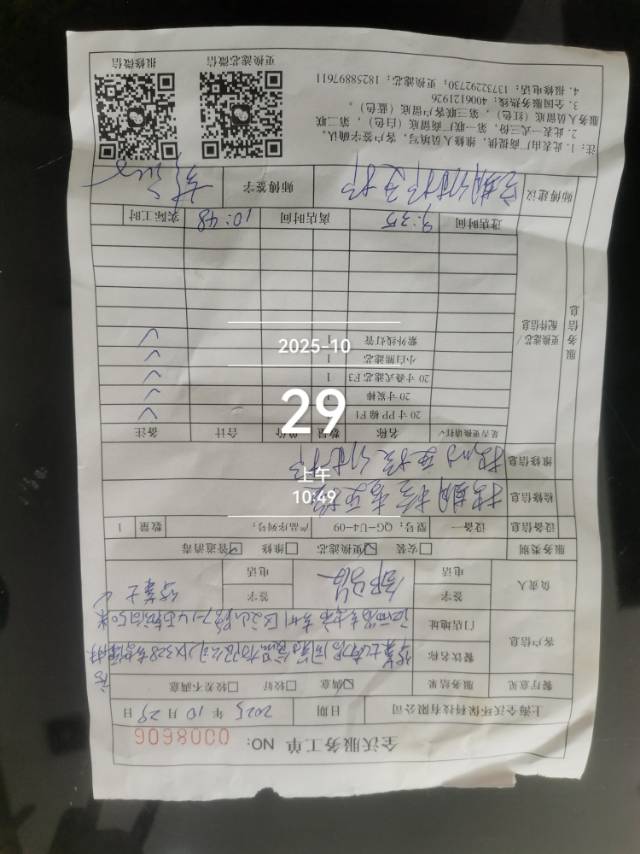 全沃服务工单 NO: 0008606
上海全沃环保科技有限公司 日期 2025 年 10 月 29 日
餐厅意见 服务结果 ☑满意 □较好 □较差不满意
客户信息 餐饮名称
门店地址
负责人 签字 签字
电话 电话
服务类别 □安装 ☑更换滤芯 □维修 ☑管道消毒
设备信息 设备一 型号: QG-U4-09 产品序列号: 数量 1
检修信息
维修信息
是否更换请打√ 名称 数量 单价 合计 备注
服务信息
更换滤芯/配件信息
20寸PP棉F1 √
20寸炭棒 1 √
20寸叠式滤芯F3 1 √
小白熊滤芯 1 √
紫外线灯管 1 √
进店时间 9:35 离店时间 10:48 实际工时
师傅建议 定期维护更换 师傅签字
注: 1. 此表由厂商提供, 维修人员填写, 客户签字确认。
2. 此表一式三份, 第一联厂商留底(白色), 第二联
服务人员留底(红色), 第三联客户留底(蓝色)。
3. 全国服务热线: 4006121926
4. 报修电话: 13732292730; 更换滤芯: 18258897611
更换滤芯微信 报修微信
2025-10
29
上午
10:49